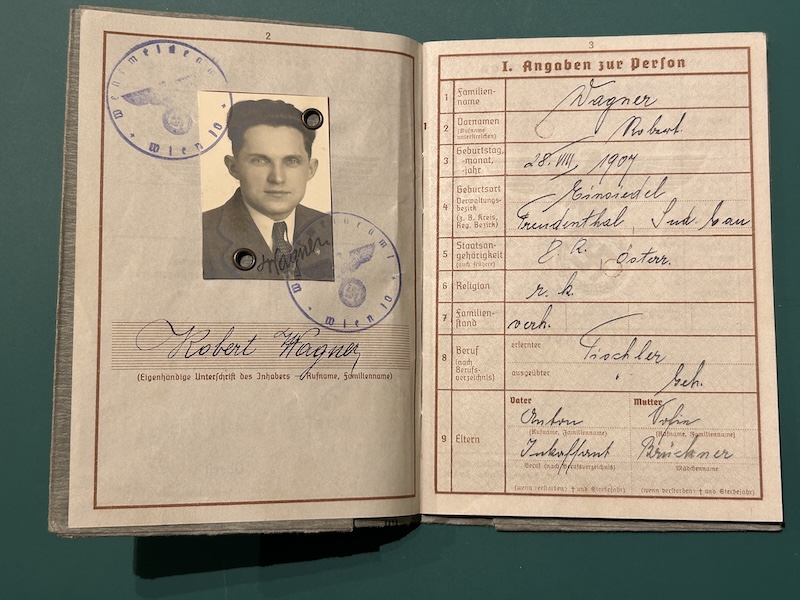 2
Wehrmeldeamt
Wien 10
Wagner
Wien 10
Robert Wagner
(Eigenhändige Unterschrift des Inhabers — Rufname, Familienname)
3
I. Angaben zur Person
1 Familien-
name
Wagner
2 Vornamen
(Rufname
unterstreichen)
Robert.
3 Geburtstag,
-monat,
-jahr
28. VIII. 1907
4 Geburtsort
Verwaltungs-
bezirk
(z. B. Kreis,
Reg. Bezirk)
Einsiedel
Freudenthal, Sud. Gau
5 Staatsan-
gehörigkeit
(auch frühere)
D. R. österr.
6 Religion
r. k.
7 Familien-
stand
verh.
8 Beruf
(nach
Berufs-
verzeichnis)
erlernter
Tischler
ausgeübter
" Geh.
9 Eltern
Vater
Anton
(Rufname, Familienname)
Beruf (nach Berufsverzeichnis)
(wenn verstorben: † und Sterbejahr)
Mutter
Sofie
(Rufname, Familienname)
Brückner
Mädchenname
(wenn verstorben: † und Sterbejahr)